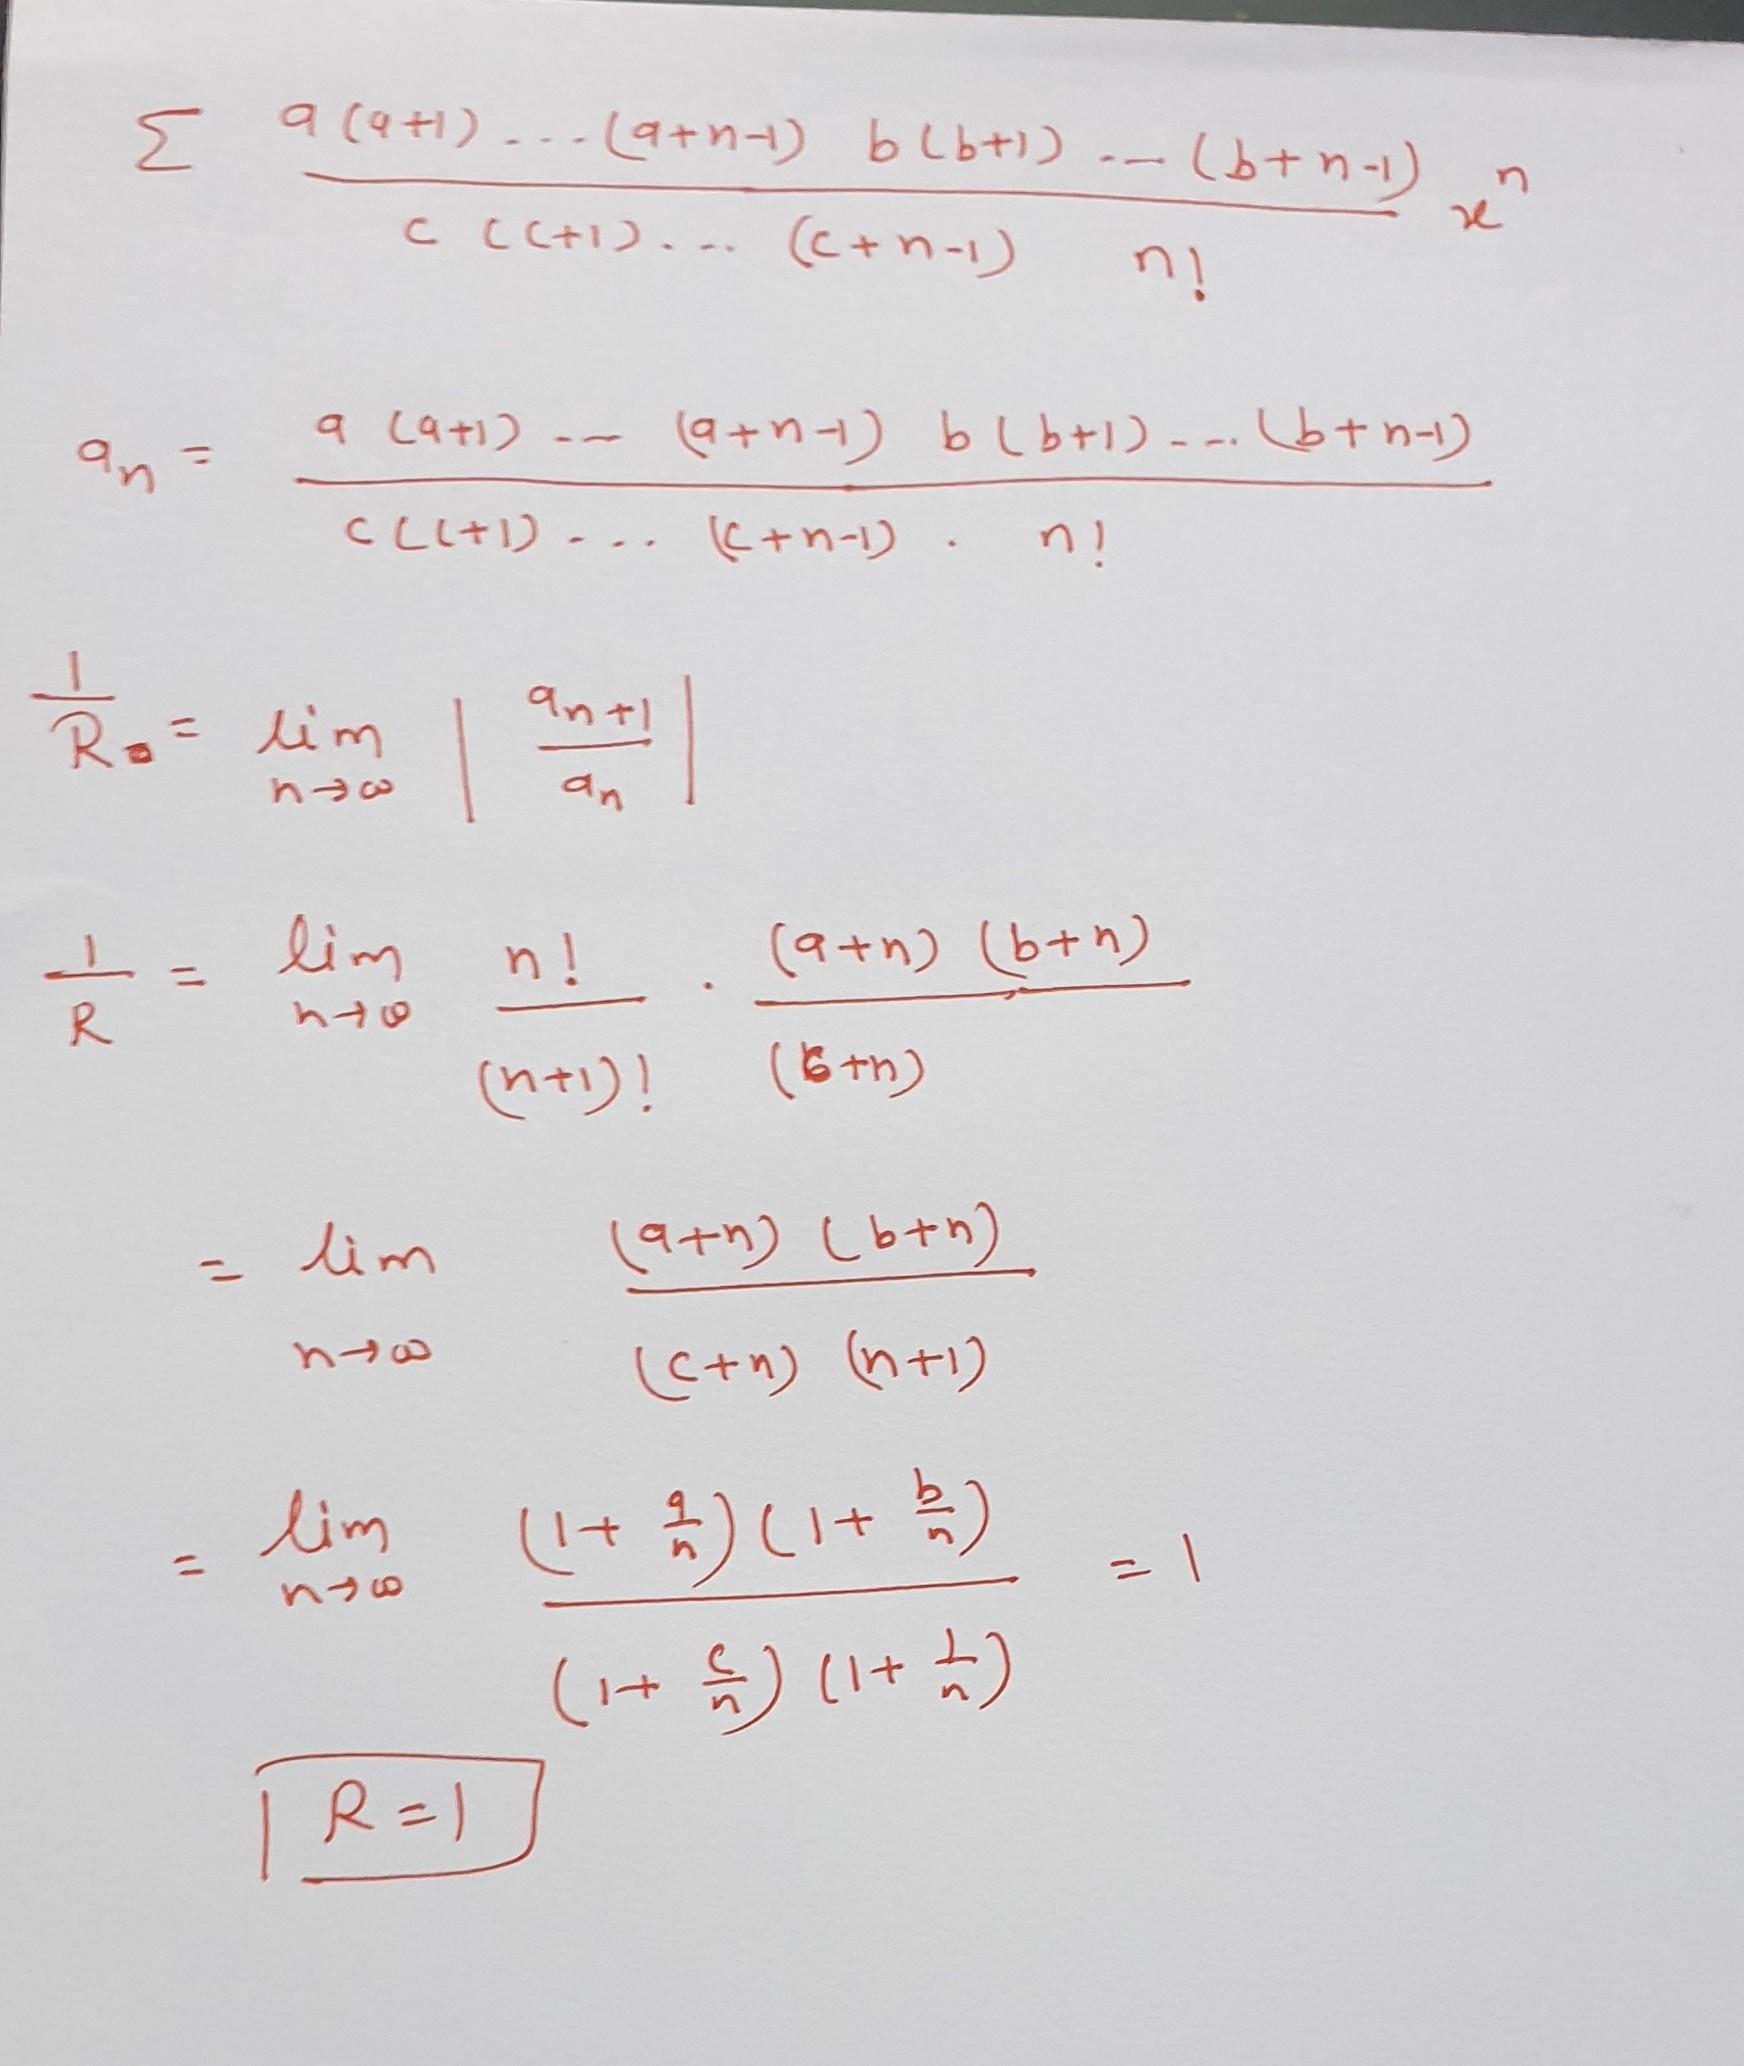 Σ a(a+1)...(a+n-1) b(b+1)...(b+n-1) / c(c+1)...(c+n-1) n! x^n
a_n = a(a+1)...(a+n-1) b(b+1)...(b+n-1) / c(c+1)...(c+n-1) . n!
1/R = lim n→∞ | a_n+1 / a_n |
1/R = lim n→∞ n! / (n+1)! . (a+n)(b+n) / (c+n)
= lim n→∞ (a+n)(b+n) / (c+n)(n+1)
= lim n→∞ (1+a/n)(1+b/n) / (1+c/n)(1+1/n) = 1
R=1